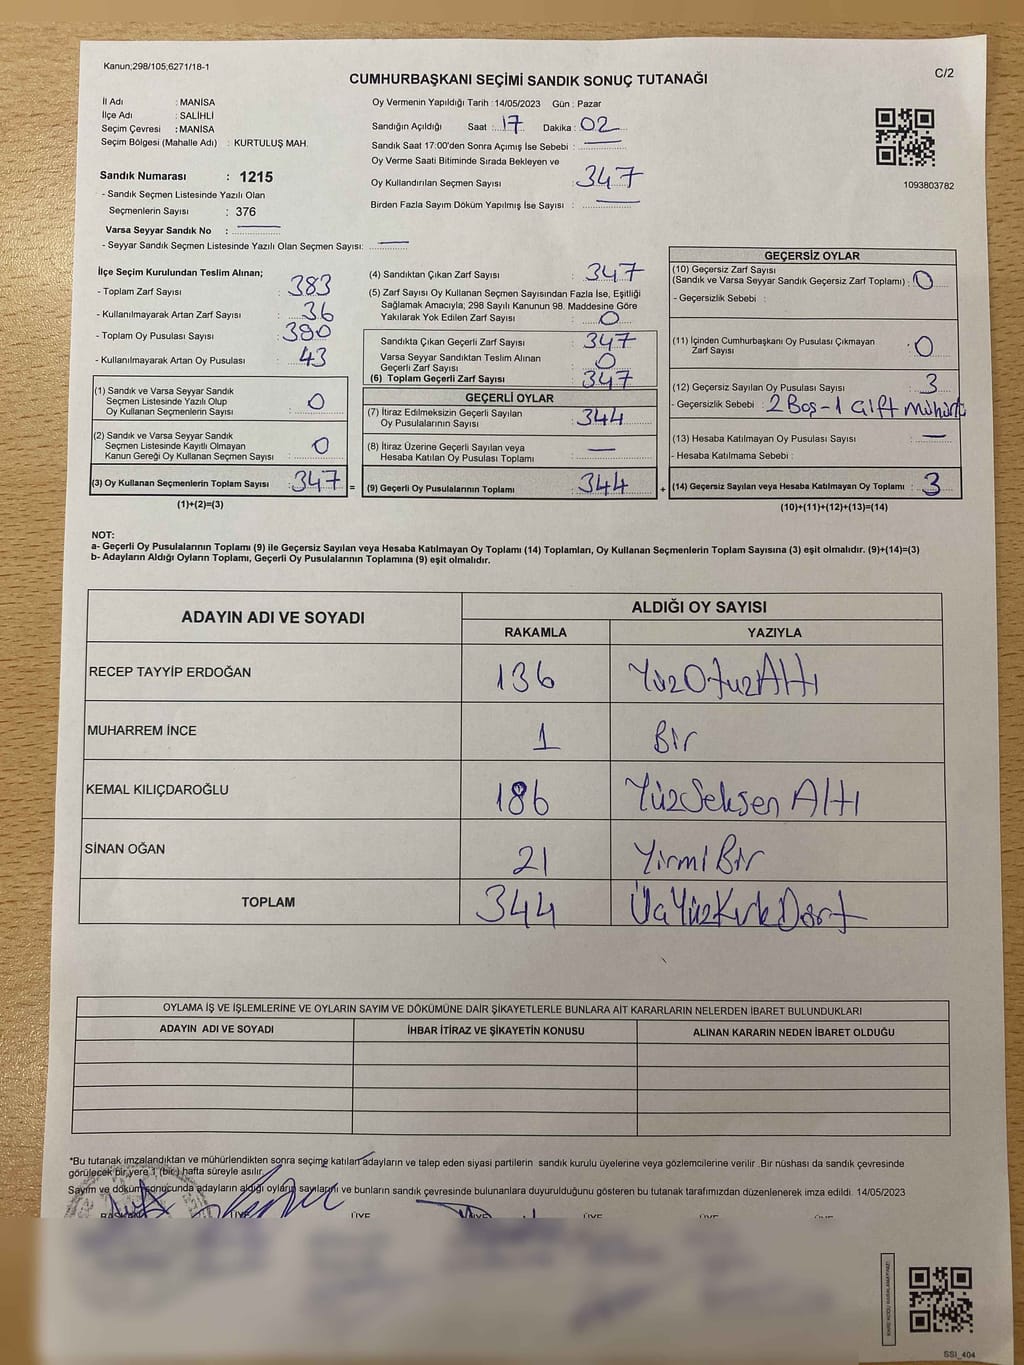 Kanun;298/105;6271/18-1
C/2
CUMHURBAŞKANI SEÇİMİ SANDIK SONUÇ TUTANAĞI
İl Adı : MANİSA
İlçe Adı : SALİHLİ
Seçim Çevresi : MANİSA
Seçim Bölgesi (Mahalle Adı) : KURTULUŞ MAH.
Sandık Numarası : 1215
- Sandık Seçmen Listesinde Yazılı Olan
Seçmenlerin Sayısı : 376
Varsa Seyyar Sandık No :
- Seyyar Sandık Seçmen Listesinde Yazılı Olan Seçmen Sayısı:
Oy Vermenin Yapıldığı Tarih : 14/05/2023 Gün : Pazar
Sandığın Açıldığı Saat : 17 Dakika : 02
Sandık Saat 17:00'den Sonra Açımış İse Sebebi :
Oy Verme Saati Bitiminde Sırada Bekleyen ve
Oy Kullandırılan Seçmen Sayısı : 347
Birden Fazla Sayım Döküm Yapılmış İse Sayısı :
1093803782
İlçe Seçim Kurulundan Teslim Alınan;
- Toplam Zarf Sayısı : 383
- Kullanılmayarak Artan Zarf Sayısı : 36
- Toplam Oy Pusulası Sayısı : 390
- Kullanılmayarak Artan Oy Pusulası : 43
(1) Sandık ve Varsa Seyyar Sandık
Seçmen Listesinde Yazılı Olup
Oy Kullanan Seçmenlerin Sayısı : 0
(2) Sandık ve Varsa Seyyar Sandık
Seçmen Listesinde Kayıtlı Olmayan
Kanun Gereği Oy Kullanan Seçmen Sayısı : 0
(3) Oy Kullanan Seçmenlerin Toplam Sayısı : 347 =
(1)+(2)=(3)
(4) Sandıktan Çıkan Zarf Sayısı : 347
(5) Zarf Sayısı Oy Kullanan Seçmen Sayısından Fazla İse, Eşitliği
Sağlamak Amacıyla; 298 Sayılı Kanunun 98. Maddesine Göre
Yakılarak Yok Edilen Zarf Sayısı : 0
Sandıkta Çıkan Geçerli Zarf Sayısı : 347
Varsa Seyyar Sandıktan Teslim Alınan
Geçerli Zarf Sayısı : 0
(6) Toplam Geçerli Zarf Sayısı : 347
GEÇERLİ OYLAR
(7) İtiraz Edilmeksizin Geçerli Sayılan
Oy Pusulalarının Sayısı : 344
(8) İtiraz Üzerine Geçerli Sayılan veya
Hesaba Katılan Oy Pusulası Toplamı :
(9) Geçerli Oy Pusulalarının Toplamı : 344 +
GEÇERSİZ OYLAR
(10) Geçersiz Zarf Sayısı
(Sandık ve Varsa Seyyar Sandık Geçersiz Zarf Toplamı) : 0
- Geçersizlik Sebebi :
(11) İçinden Cumhurbaşkanı Oy Pusulası Çıkmayan
Zarf Sayısı : 0
(12) Geçersiz Sayılan Oy Pusulası Sayısı : 3
- Geçersizlik Sebebi : 2 Boş - 1 Çift mühür
(13) Hesaba Katılmayan Oy Pusulası Sayısı :
- Hesaba Katılmama Sebebi :
(14) Geçersiz Sayılan veya Hesaba Katılmayan Oy Toplamı : 3
(10)+(11)+(12)+(13)=(14)
NOT:
a- Geçerli Oy Pusulalarının Toplamı (9) ile Geçersiz Sayılan veya Hesaba Katılmayan Oy Toplamı (14) Toplamları, Oy Kullanan Seçmenlerin Toplam Sayısına (3) eşit olmalıdır. (9)+(14)=(3)
b- Adayların Aldığı Oyların Toplamı, Geçerli Oy Pusulalarının Toplamına (9) eşit olmalıdır.
ADAYIN ADI VE SOYADI
ALDIĞI OY SAYISI
RAKAMLA YAZIYLA
RECEP TAYYİP ERDOĞAN 136 YüzOtuzAltı
MUHARREM İNCE 1 Bir
KEMAL KILIÇDAROĞLU 186 YüzSeksen Altı
SİNAN OĞAN 21 Yirmi Bir
TOPLAM 344 ÜçYüzKırkDört
OYLAMA İŞ VE İŞLEMLERİNE VE OYLARIN SAYIM VE DÖKÜMÜNE DAİR ŞİKAYETLERLE BUNLARA AİT KARARLARIN NELERDEN İBARET BULUNDUKLARI
ADAYIN ADI VE SOYADI İHBAR İTİRAZ VE ŞİKAYETİN KONUSU ALINAN KARARIN NEDEN İBARET OLDUĞU
*Bu tutanak imzalandıktan ve mühürlendikten sonra seçime katılan adayların ve talep eden siyasi partilerin sandık kurulu üyelerine veya gözlemcilerine verilir .Bir nüshası da sandık çevresinde
görülecek bir yere 1 (bir ) hafta süreyle asılır.
Sayım ve döküm sonucunda adayların aldığı oyların sayılarını ve bunların sandık çevresinde bulunanlara duyurulduğunu gösteren bu tutanak tarafımızdan düzenlenerek imza edildi. 14/05/2023
BAŞKAN ÜYE ÜYE ÜYE ÜYE ÜYE ÜYE
SSI_404